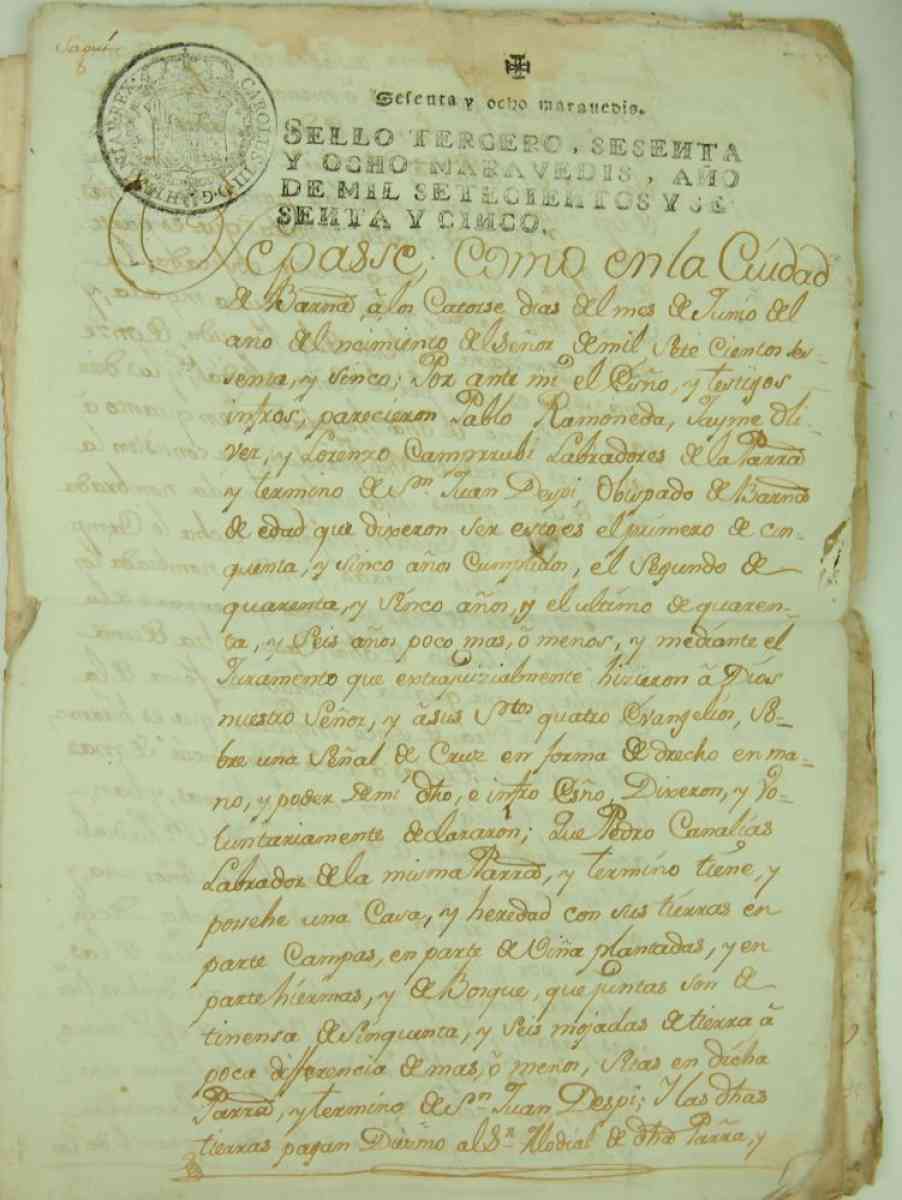 Sesenta y ocho maravedis.
SELLO TERCERO, SESENTA
Y OCHO MARAVEDIS, AÑO
DE MIL SETECIENTOS Y SE
SENTA Y CINCO.
CAROLUS III D G HISPANIAR REX
Sepasse, como en la Ciudad
de Barna à los Catorse dias del mes de Junio del
año del nacimiento del Señor de mil Sete Cientos Ses-
senta, y Sinco; Por ante mi el Esño, y testigos
infros, parecieron Pablo Ramoneda, Jayme Oli-
ver, y Lorenzo Camprubi Labradores de la Parrã
y termino de Sn. Juan Despi, Obispado de Barna
de edad que dixeron ser esto es el primero de cin-
quenta, y Sinco años Cumplidos, el Segundo de
quarenta, y Sinco años, y el ultimo de quaren-
ta, y Seis años poco mas, ò menos, y mediante el
Juramento que extrajuizialmente hizieron à Dios
nuestro Señor, y à sus Stos quatro Evangelios, So-
bre una Señal de Cruz en forma de drecho en ma-
no, y poder de mi dho, è infro Esño, Dixeron, y Vo-
luntariamente declararon; Que Pedro Canalias
Labrador de la misma Parrã, y termino tiene, y
posehe una Casa, y heredad con sus tierras en
parte Campas, en parte de Viña plantadas, y en
parte hiermas, y de Bosque, que juntas son de
tinensa de Sinquenta, y Seis mojadas de tierra à
poca differencia de mas, ò menos, Sitas en dicha
Parrã, y termino de Sn. Juan Despi; Y las dhas
tierras pagan Diezmo al Sr. Alodial de dha Parrã, y